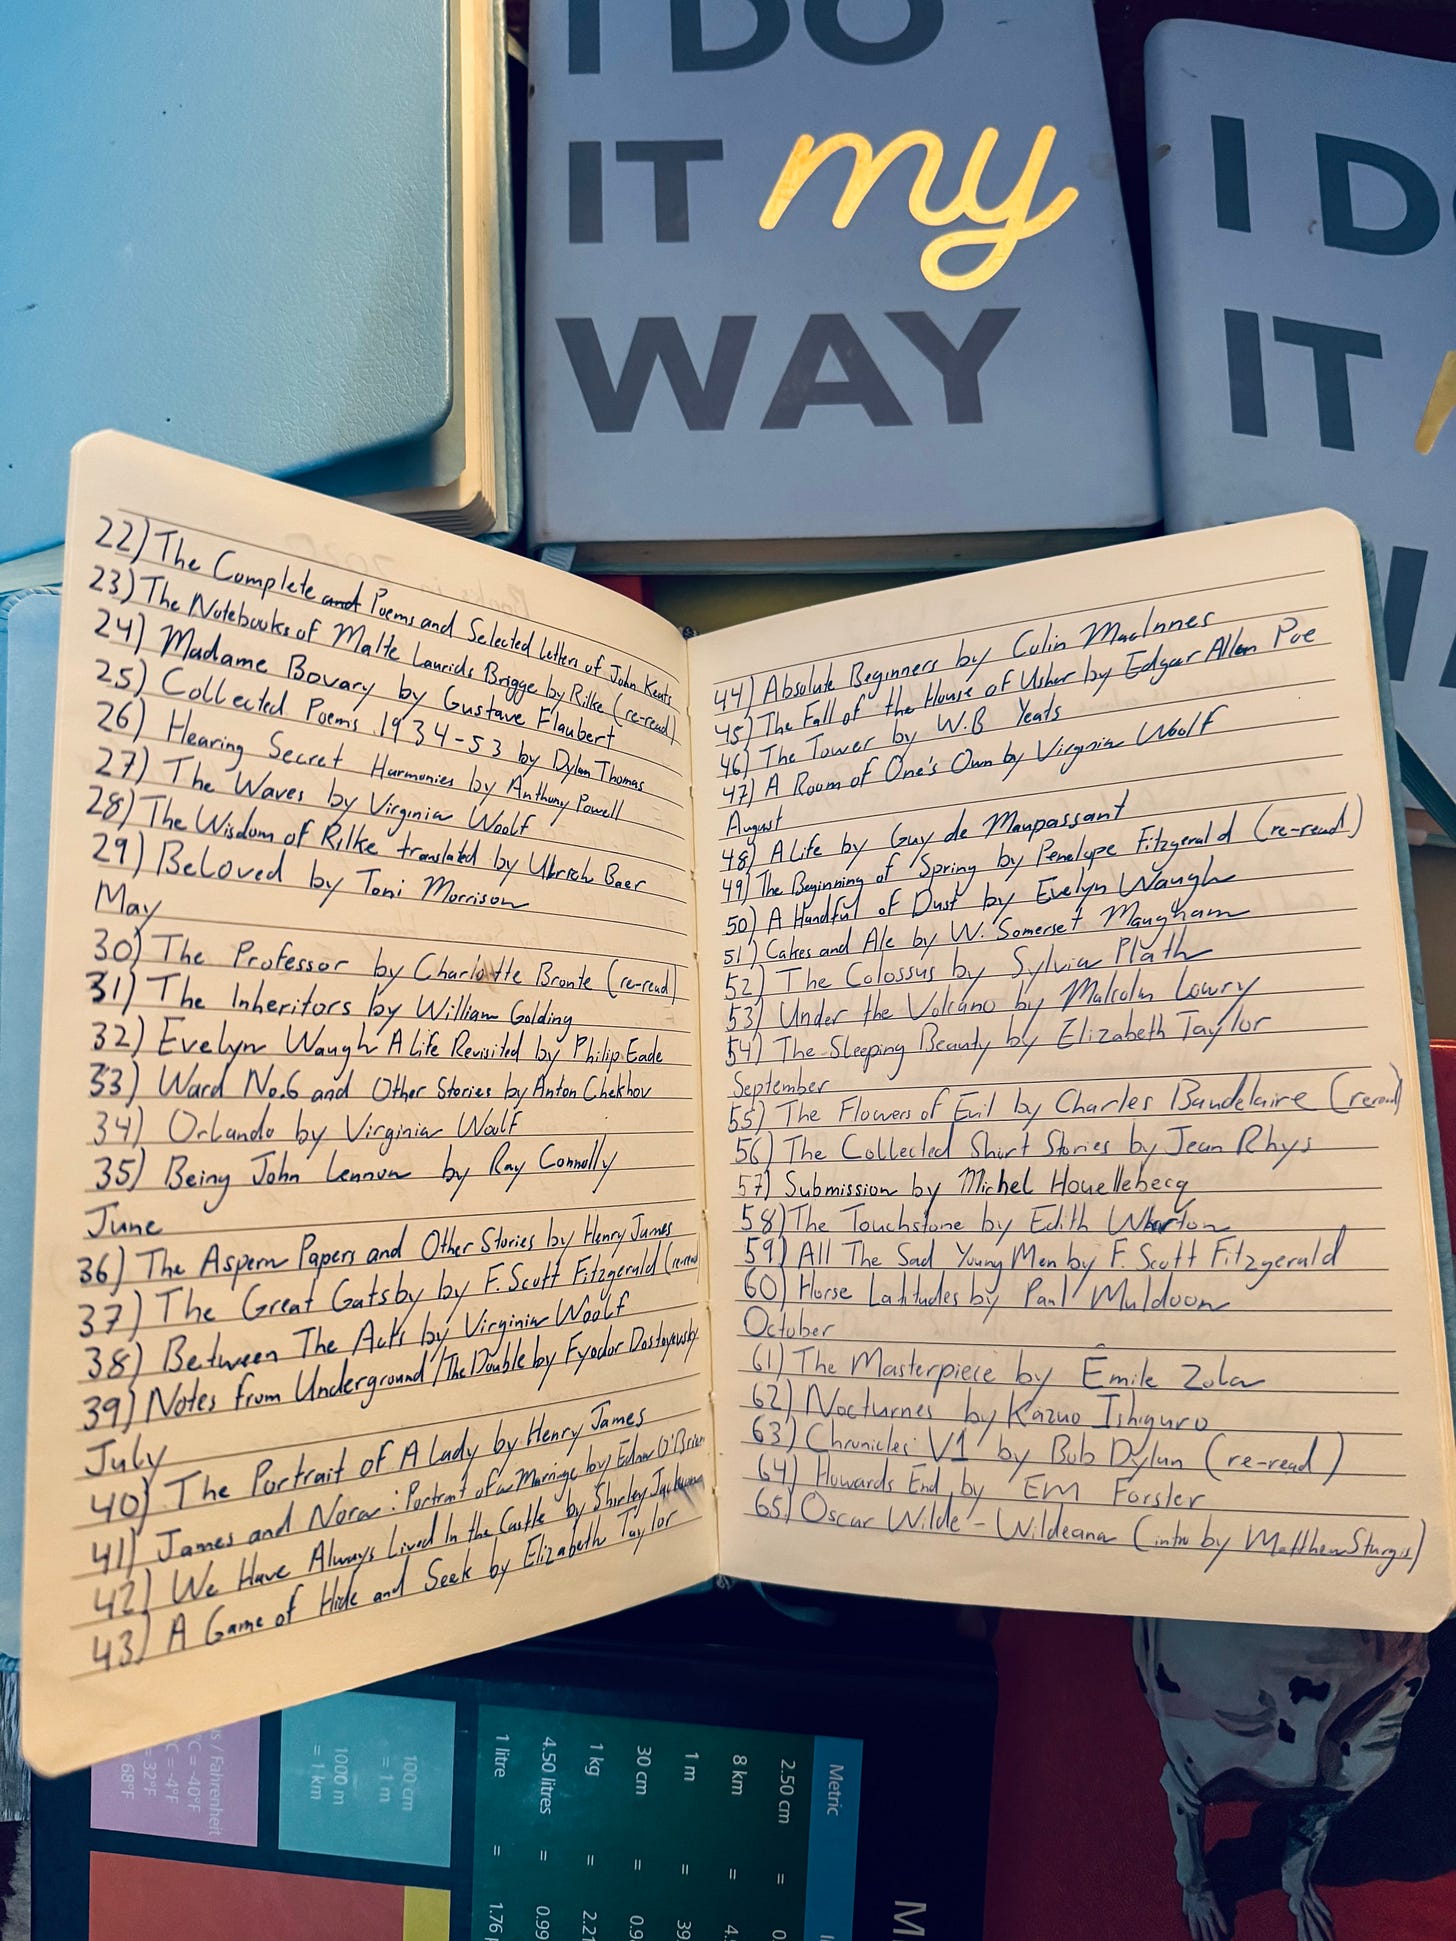 I DO
IT my
WAY
I DO
IT
22) The Complete and Poems and Selected Letters of John Keats
23) The Notebooks of Malte Laurids Brigge by Rilke (re-read)
24) Madame Bovary by Gustave Flaubert
25) Collected Poems 1934-53 by Dylan Thomas
26) Hearing Secret Harmonies by Anthony Powell
27) The Waves by Virginia Woolf
28) The Wisdom of Rilke translated by Ulrich Baer
29) Beloved by Toni Morrison
May
30) The Professor by Charlotte Bronte (re-read)
31) The Inheritors by William Golding
32) Evelyn Waugh A Life Revisited by Philip Eade
33) Ward No.6 and Other Stories by Anton Chekhov
34) Orlando by Virginia Woolf
35) Being John Lennon by Ray Connolly
June
36) The Aspern Papers and Other Stories by Henry James
37) The Great Gatsby by F. Scott Fitzgerald (re-read
38) Between The Acts by Virginia Woolf
39) Notes from Underground/The Double by Fyodor Dostoyevsky
July
40) The Portrait of A Lady by Henry James
41) James and Nora: Portrait of a Marriage by Edna O'Brien
42) We Have Always Lived In the Castle by Shirley Jackson
43) A Game of Hide and Seek by Elizabeth Taylor
44) Absolute Beginners by Colin MacInnes
45) The Fall of the House of Usher by Edgar Allen Poe
46) The Tower by W.B Yeats
47) A Room of One's Own by Virginia Woolf
August
48) A Life by Guy de Maupassant
49) The Beginning of Spring by Penelope Fitzgerald (re-read)
50) A Handful of Dust by Evelyn Waugh
51) Cakes and Ale by W. Somerset Maugham
52) The Colossus by Sylvia Plath
53) Under the Volcano by Malcolm Lowry
54) The Sleeping Beauty by Elizabeth Taylor
September
55) The Flowers of Evil by Charles Baudelaire (reread)
56) The Collected Short Stories by Jean Rhys
57) Submission by Michel Houellebecq
58) The Touchstone by Edith Wharton
59) All The Sad Young Men by F. Scott Fitzgerald
60) Horse Latitudes by Paul Muldoon
October
61) The Masterpiece by Émile Zola
62) Nocturnes by Kazuo Ishiguro
63) Chronicles V1 by Bob Dylan (re-read)
64) Howards End by EM Forster
65) Oscar Wilde - Wildeana (intro by Matthew Sturgis)
Metric
2.50 cm =
8 km =
1 m =
30 cm =
1 kg =
4.50 litres =
1 litre =
100 cm
= 1 m
1000 m
= 1 km
/ Fahrenheit
= -40°F
= -4°F
= 32°F
= 68°F